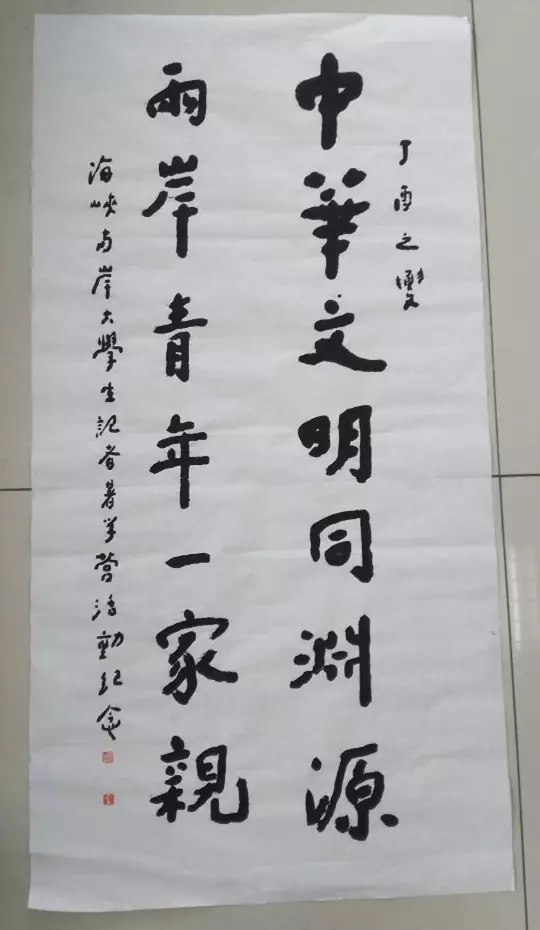 丁酉之
中華文明同渊源
兩岸青年一家親
海峽两岸大學生記者暑学營活動纪念